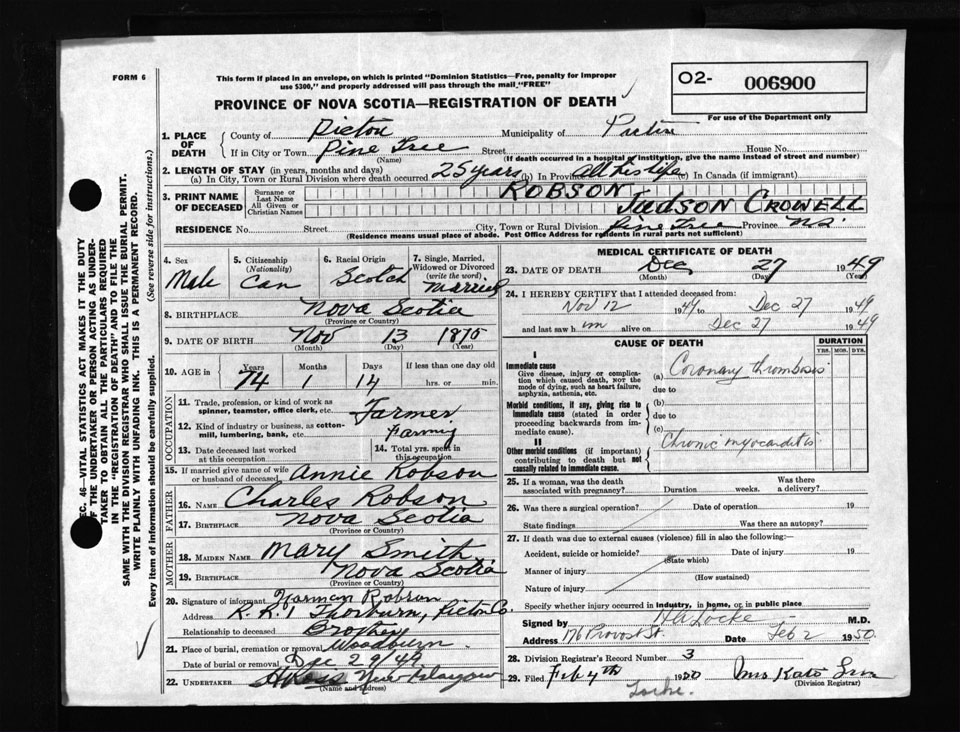 FORM 6
This form if placed in an envelope, on which is printed "Dominion Statistics—Free, penalty for improper
use $300," and properly addressed will pass through the mail "FREE"
PROVINCE OF NOVA SCOTIA—REGISTRATION OF DEATH
O2- 006900
For use of the Department only
1. PLACE OF DEATH
County of Pictou Municipality of Pictou
If in City or Town Pine Tree Street House No.
(Name) (If death occurred in a hospital or institution, give the name instead of street and number)
2. LENGTH OF STAY (in years, months and days)
(a) In City, Town or Rural Division where death occurred 25 years (b) In Province all his life (c) In Canada (if immigrant)
3. PRINT NAME OF DECEASED
Surname or Last Name ROBSON
All Given or Christian Names JUDSON CROWELL
RESIDENCE No. Street City, Town or Rural Division Pine Tree Province N.S.
(Residence means usual place of abode. Post Office Address for residents in rural parts not sufficient)
4. Sex Male
5. Citizenship (Nationality) Can
6. Racial Origin Scotch
7. Single, Married, Widowed or Divorced (write the word) Married
8. BIRTHPLACE Nova Scotia
(Province or Country)
9. DATE OF BIRTH Nov 13 1875
(Month) (Day) (Year)
10. AGE in Years Months Days If less than one day old
74 1 14 hrs. or min.
OCCUPATION
11. Trade, profession, or kind of work as spinner, teamster, office clerk, etc. Farmer
12. Kind of industry or business, as cotton-mill, lumbering, bank, etc. Farming
13. Date deceased last worked at this occupation
14. Total yrs. spent in this occupation
15. If married give name of wife or husband of deceased Annie Robson
FATHER
16. NAME Charles Robson
17. BIRTHPLACE Nova Scotia
(Province or Country)
MOTHER
18. MAIDEN NAME Mary Smith
19. BIRTHPLACE Nova Scotia
(Province or Country)
20. Signature of informant Norman Robson
Address R.R.1 Thorburn, Pictou Co.
Relationship to deceased Brother
21. Place of burial, cremation or removal Woodburn
Date of burial or removal Dec 29/49
22. UNDERTAKER New Glasgow
(Name and address)
MEDICAL CERTIFICATE OF DEATH
23. DATE OF DEATH Dec 27 1949
(Month) (Day)
24. I HEREBY CERTIFY that I attended deceased from:
Nov 12 1949 to Dec 27 1949
and last saw him alive on Dec 27 1949
CAUSE OF DEATH
DURATION
YRS. MOS. DYS.
I
Immediate cause
Give disease, injury or complication which caused death, NOT the mode of dying, such as heart failure, asphyxia, asthenia, etc.
(a) Coronary thrombosis
due to
Morbid conditions, if any, giving rise to immediate cause (stated in order proceeding backwards from immediate cause).
(b)
due to
(c)
II
Other morbid conditions (if important) contributing to death but not causally related to immediate cause.
Chronic myocarditis
25. If a woman, was the death associated with pregnancy? Duration weeks. Was there a delivery?
26. Was there a surgical operation? Date of operation 19
State findings Was there an autopsy?
27. If death was due to external causes (violence) fill in also the following:
Accident, suicide or homicide? Date of injury 19
(State which)
Manner of injury
(How sustained)
Nature of injury
Specify whether injury occurred in industry, in home, or in public place
Signed by H A Locke M.D.
Address 176 Provost St. Date Feb 2 1950
28. Division Registrar's Record Number 3
29. Filed Feb 4th 1950 Mrs Kate
(Division Registrar)
Locke.
SEC. 46—VITAL STATISTICS ACT MAKES IT THE DUTY
OF THE UNDERTAKER OR PERSON ACTING AS UNDER-
TAKER TO OBTAIN ALL THE PARTICULARS REQUIRED
IN THE "REGISTRATION OF DEATH" AND TO FILE THE
SAME WITH THE DIVISION REGISTRAR WHO SHALL ISSUE THE BURIAL PERMIT.
WRITE PLAINLY WITH UNFADING INK. THIS IS A PERMANENT RECORD.
Every item of information should be carefully supplied. (See reverse side for instructions.)